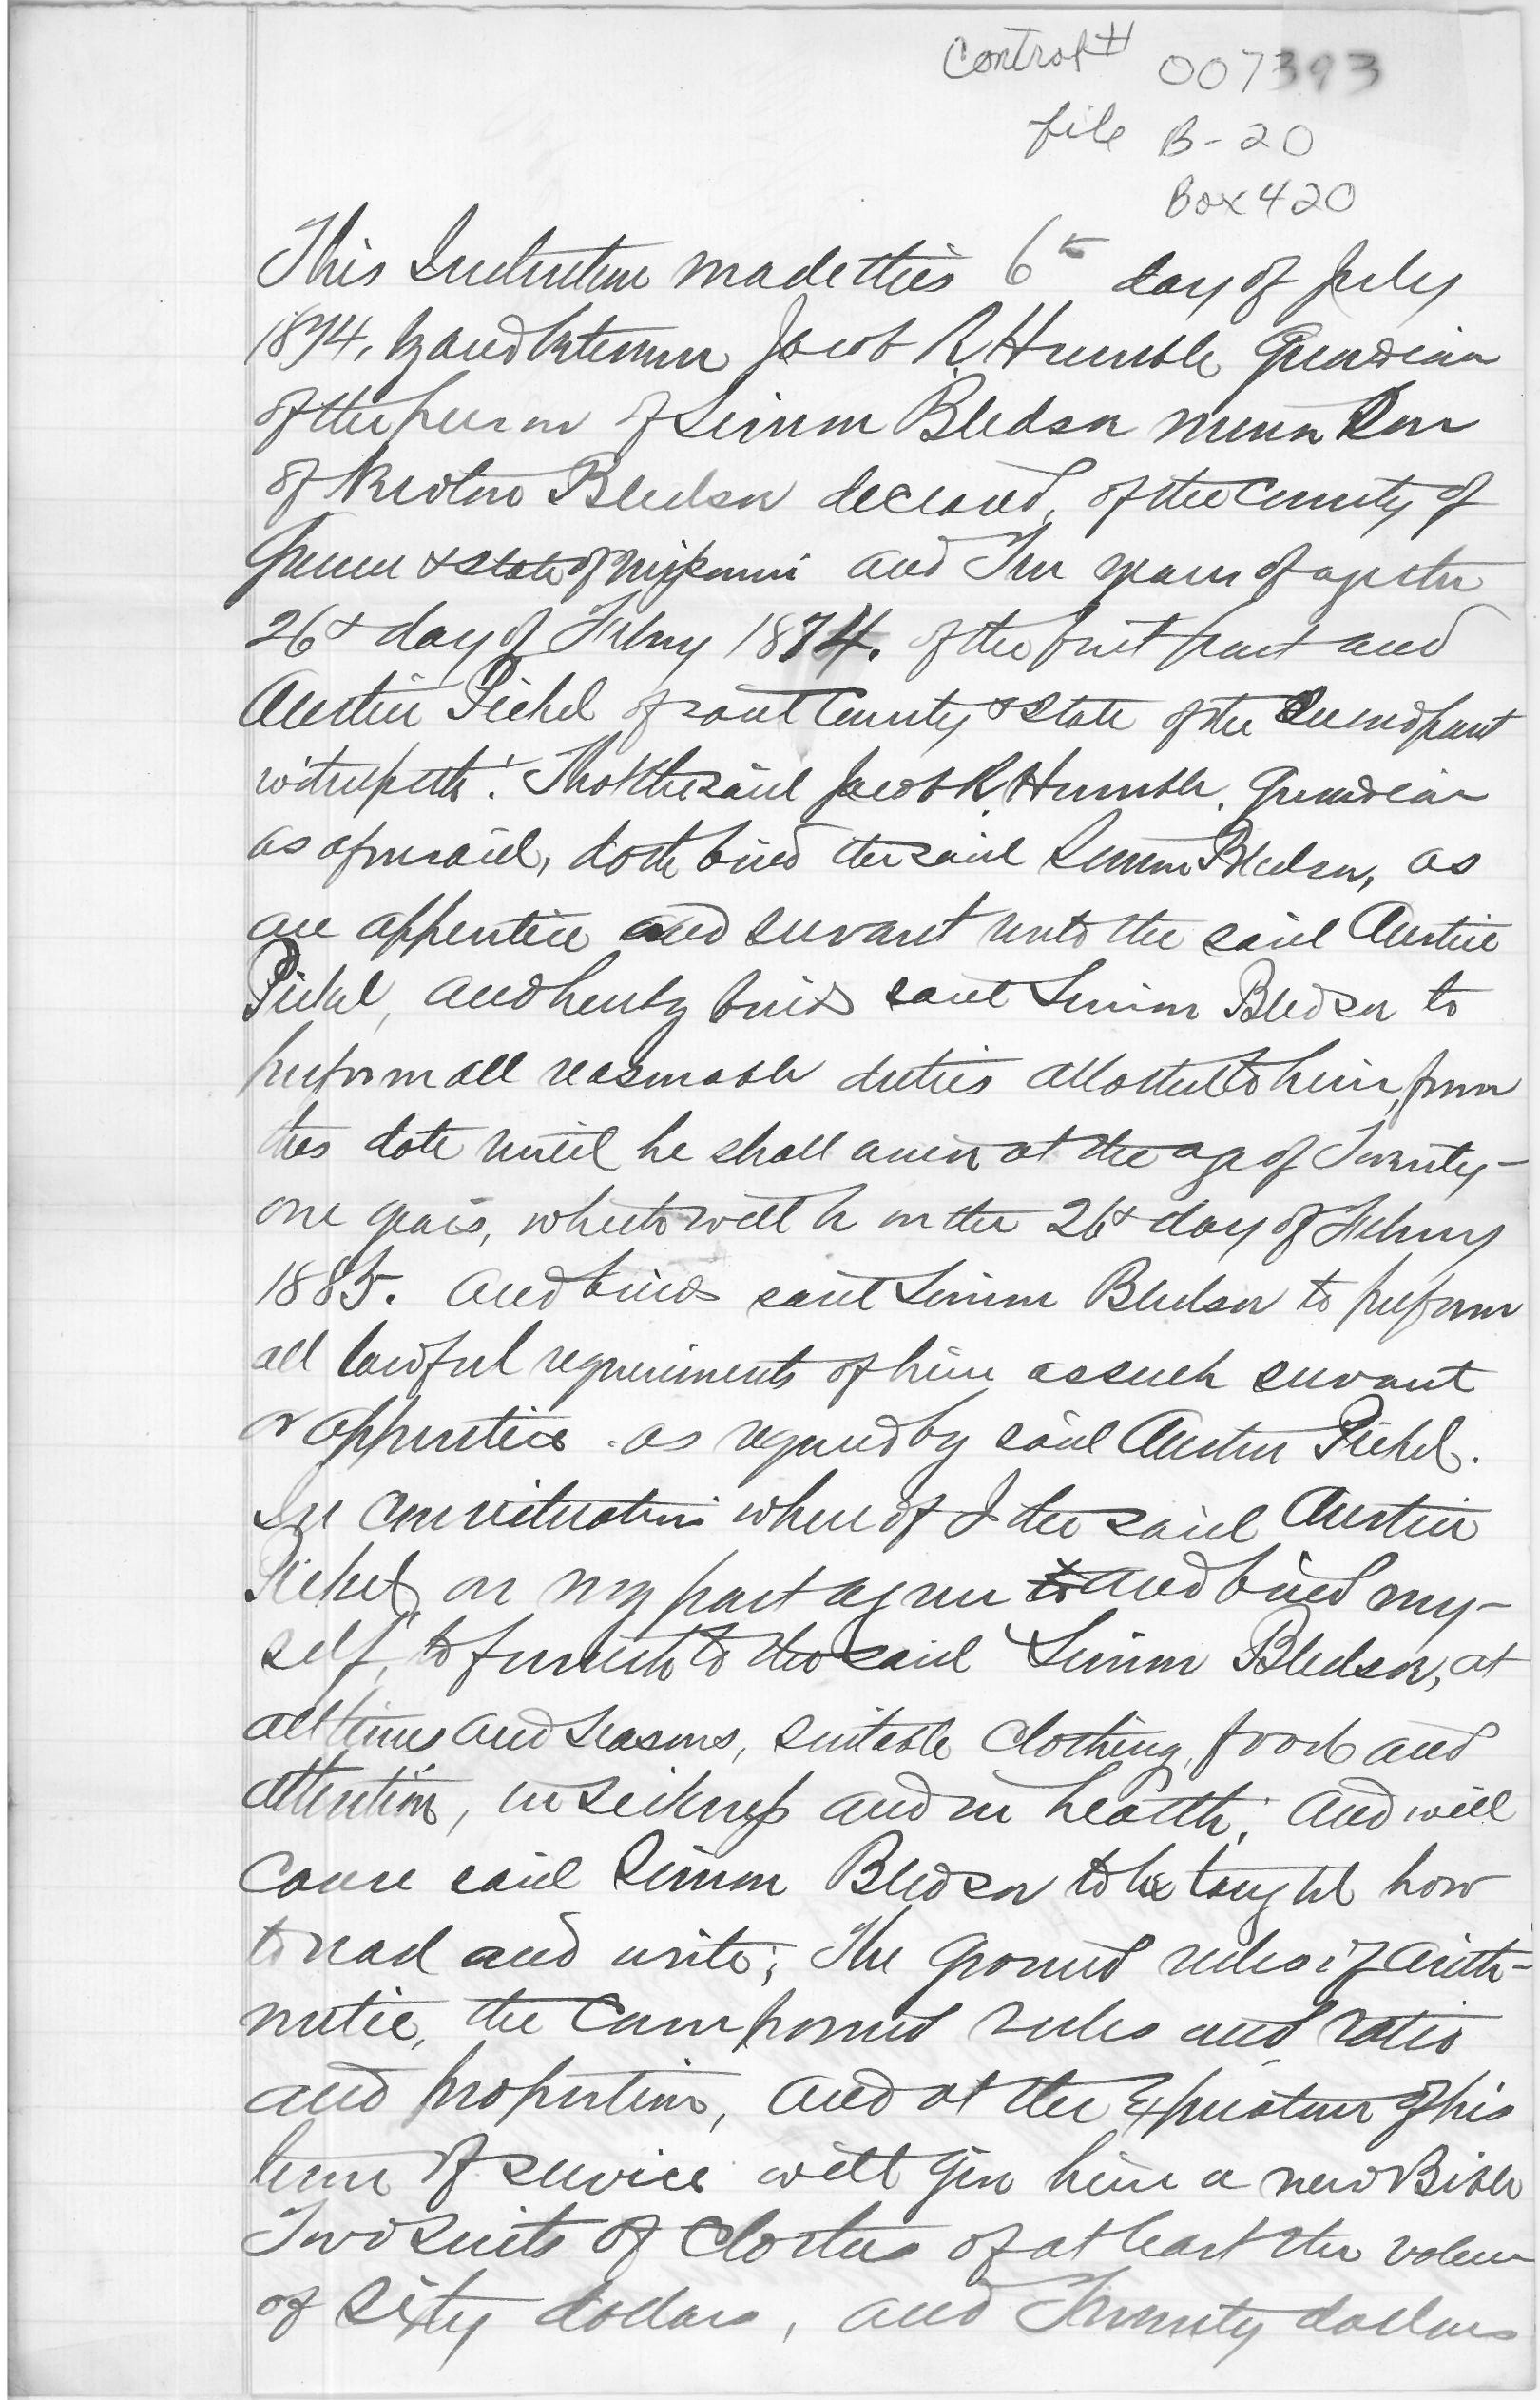 Control # 007393
file B-20
Box 420
This Indenture made this 6th day of July
1874, by and between Jacob R Humble, Guardian
of the person of Simon Bledsoe minor Son
of Newton Bledsoe deceased, of the County of
Greene & State of Missouri and Ten years of age the
26th day of Febry 1874. of the first part and
Austin Pickel of said County & State of the Second part
witnesseth: That the said Jacob R. Humble, Guardian
as aforesaid, doth bind the said Simon Bledsoe, as
an apprentice and servant unto the said Austin
Pickel, and hereby binds said Simon Bledsoe to
perform all reasonable duties allotted to him, from
this date until he shall arive at the age of Twenty-
one years, which will be on the 26th day of Febry
1885. and binds said Simon Bledsoe to perform
all lawful requirements of him as such servant
or apprentice as required by said Austin Pickel.
In consideration whereof I the said Austin
Pickel, on my part agree to and bind my-
self, to furnish to the said Simon Bledsoe, at
all times and seasons, suitable clothing, food and
attention, in sickness and in health; and will
cause said Simon Bledsoe to be taught how
to read and write; The ground rules of arith-
metic, the Compound rules and ratio
and proportion, and at the Expiration of his
term of service will give him a new Bible
Two Suits of Clothes of at least the value
of Sixty dollars, and Twenty dollars